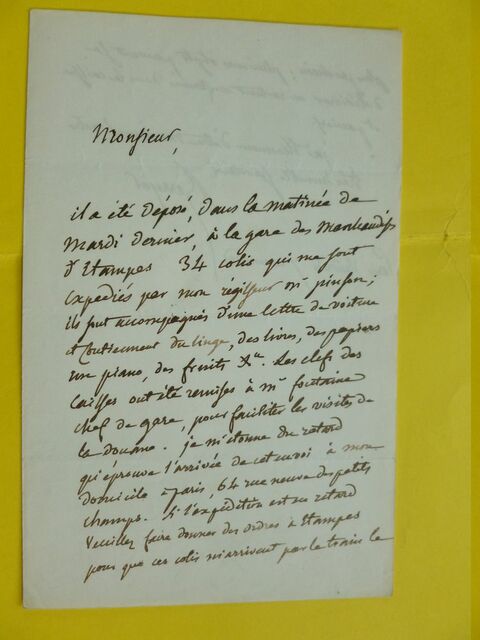 Monsieur,
il a été déposé, dans la matinée de
mardi dernier, à la gare des marchandises
d'Etampes 34 colis qui me sont
expediés par mon régisseur mr pinson;
ils sont accompagnés d'une lettre de voiture
et contiennent du linge, des livres, des papiers
un piano, des fruits &a. Les clefs des
caisses ont été remises à mr fontaine
chef de gare, pour faciliter les visites de
la douane. je m'étonne du retard
qu'éprouve l'arrivée de cet envoi à mon
domicile à Paris, 64 rue neuve des petits
champs. Si l'expédition est en retard
Veuillez faire donner des ordres à Etampes
pour que ces colis m'arrivent par le train le